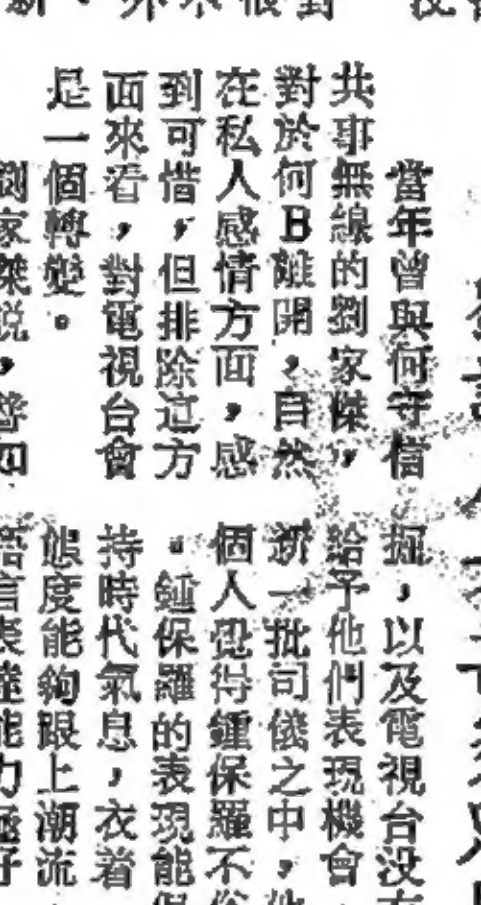 當年曾與何守信
共事無線的劉家傑，
對於何B離開，自然
在私人感情方面，感
到可惜，但排除這方
面來看，對電視台會
是一個轉變。
劉家傑説，譬如
掘，以及電視台没
給予他們表現機會
新一批司儀之中，他
個人覺得鍾保羅不
。鍾保羅的表現能
持時代氣息，衣着
態度能夠跟上潮流
語言表達能力極好